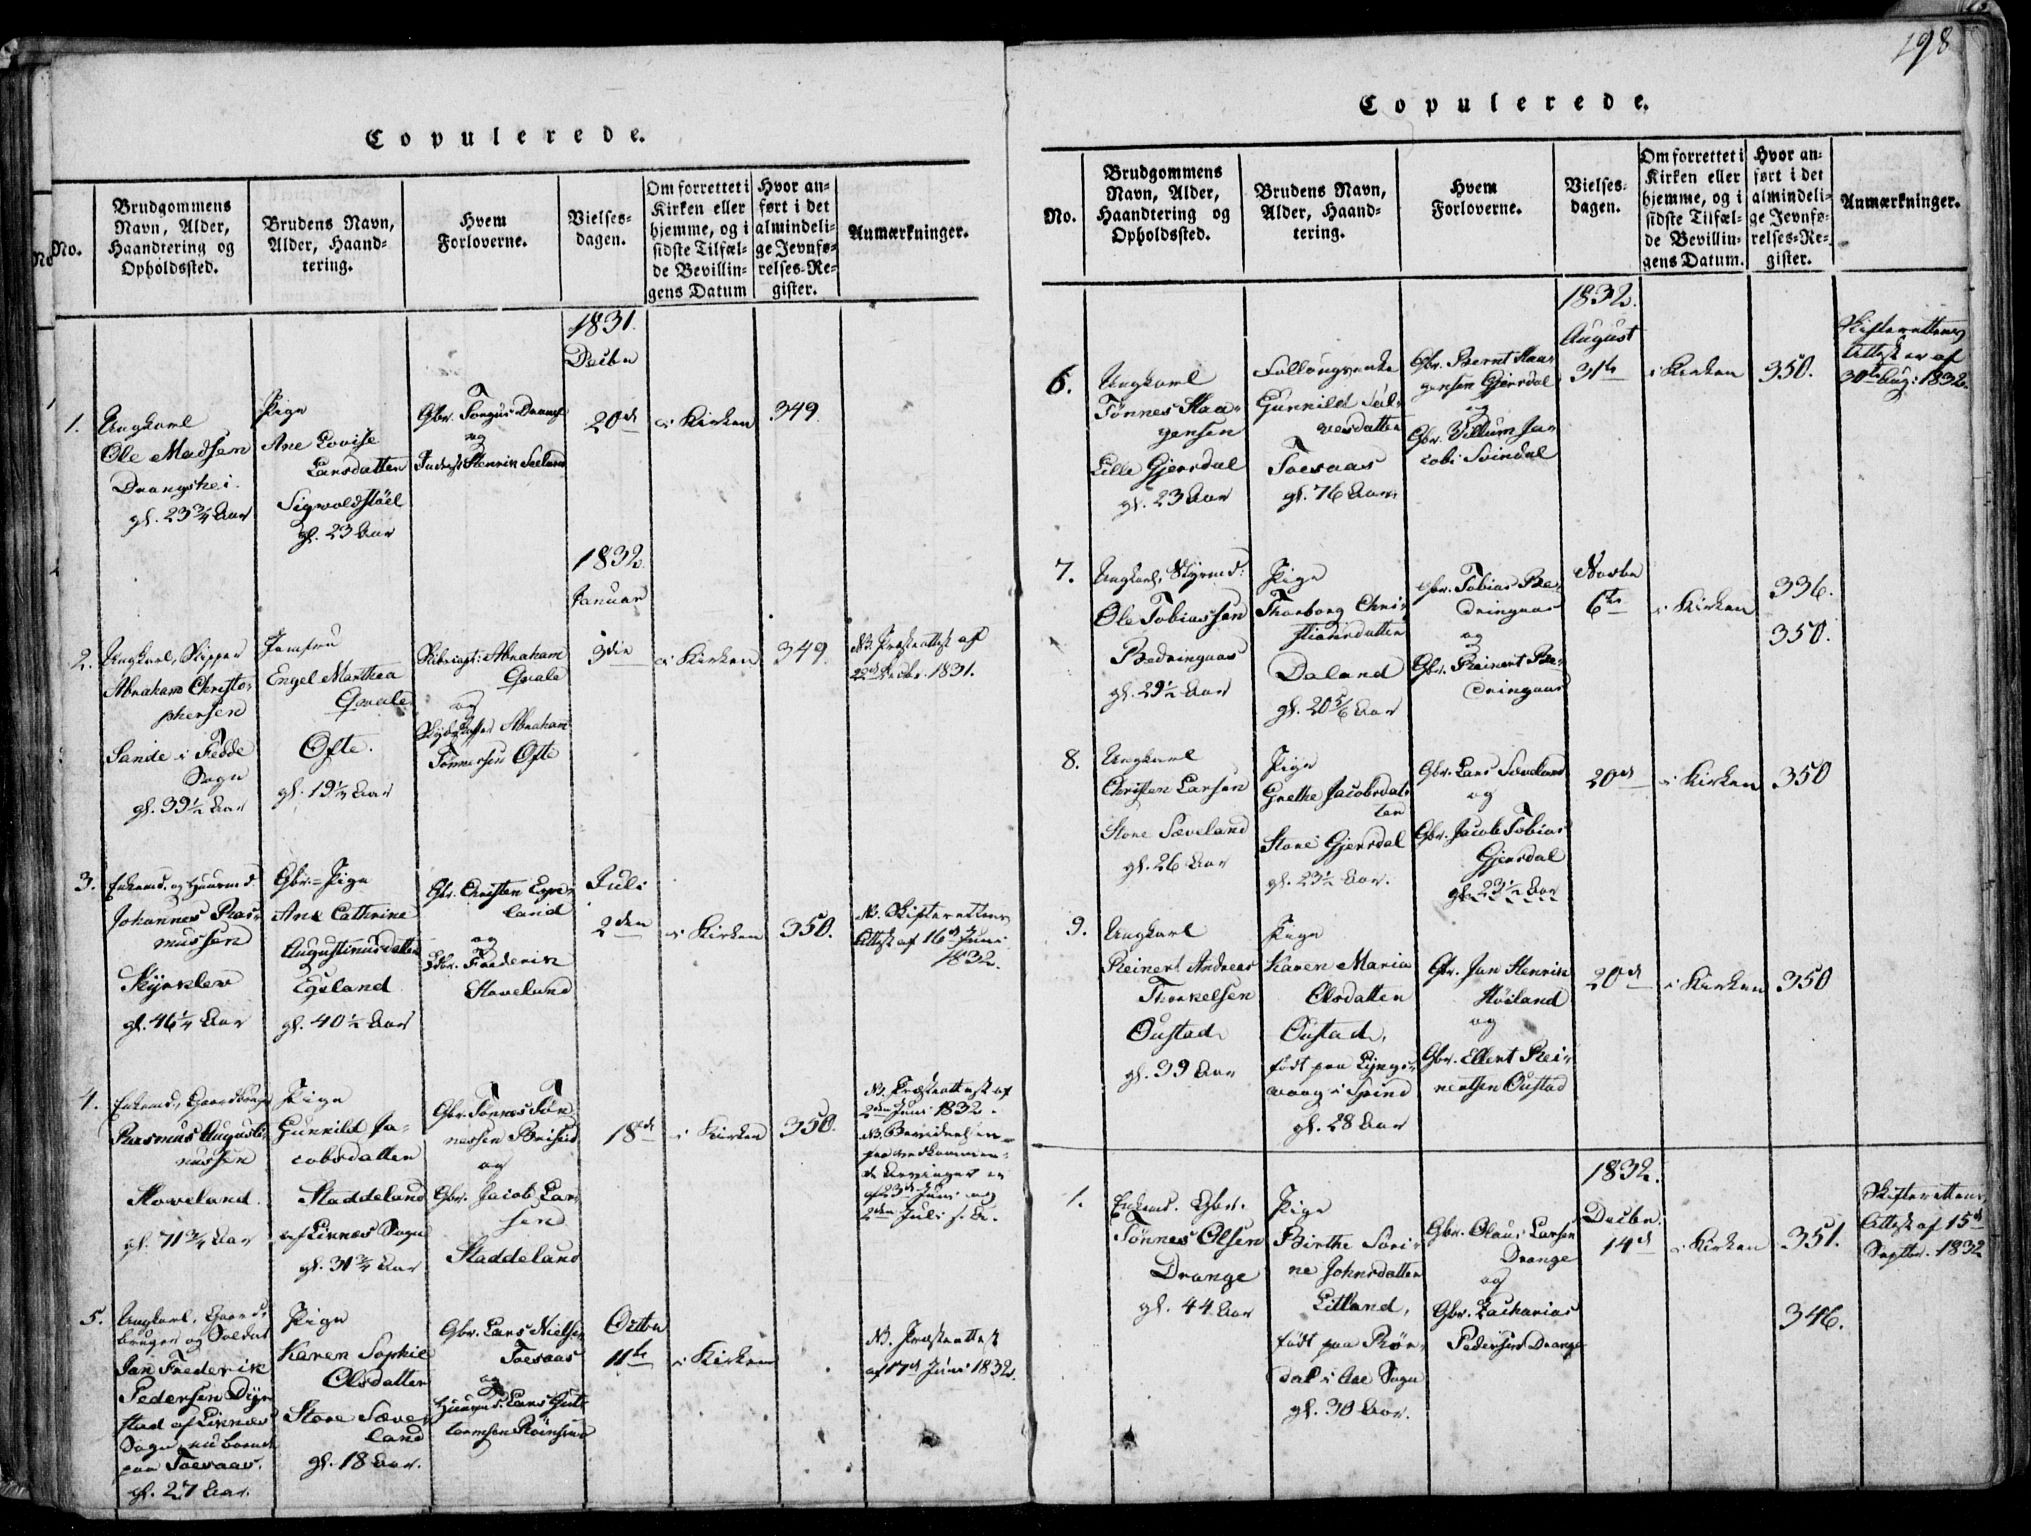 198
Copulerede.
No.
Brudgommens
Navn, Alder,
Haandtering og
Opholdssted.
Brudens Navn,
Alder, Haand-
tering.
Hvem
Forloverne.
Vielses-
dagen.
Om forrettet i
Kirken eller
hjemme, og i
sidste Tilfæl-
de Bevillin-
gens Datum
Hvor an-
ført i det
almindeli-
ge Jevnfø-
relses-Re-
gister.
Anmærkninger.
1831.
Decbr
1.
Ungkarl
Ole Madsen
Drangshei.
gl. 23 3/4 Aar
Pige
Ane Lovise
Larsdatter
Sigvoldstöel
gl. 23 Aar
Gbr.
og
Henrik
20de
i Kirken
349.
1832.
Januar
2.
Ungkarl, Skipper
Abraham Christo-
phersen
Sande i Fedde
Sogn
gl. 39 1/2 Aar
Jomfru
Engel Marthea
Qvale
Ofte.
gl. 19 1/4 Aar
Abraham
Qvale
og
Abraham
Tönnessen Ofte
3die
i Kirken
349.
NB. Præsteattest af
22de Decbr. 1831.
3.
Enkemd. og Huusmd.
Johannes Ras-
mussen
Skjekler
gl. 46 1/4 Aar
Gbr.= Pige
Ane Cathrine
Augustinusdatter
Egeland
gl. 40 1/2 Aar
Gbr. Christen Ege-
land
og
Gbr. Frederik
Stoveland
Juli
2den
i Kirken
350.
NB. Skifterettens
Attest af 16de Juni
1832.
4.
Enkemd., Gaardbruger
Rasmus Augusti-
nussen
Stoveland.
gl. 71 3/4 Aar
Pige
Gunnild Ja-
cobsdatter
Staddeland
af Livnes Sogn
gl. 31 3/4 Aar
Gbr. Tönnes Tön-
nessen Briseid
og
Gbr. Jacob Lar-
sen
Staddeland
18de
i Kirken
350.
NB. Præsteattest af
2den Juni 1832.
NB.
af 23de Juni og
2den Juli s. A.
5.
Ungkarl, Gaard-
bruger og Soldat
Jan Frederik
Pedersen
stad af Livnes
Sogn, nu boende
paa Toesaas.
gl. 27 Aar.
Pige
Karen Sophie
Olsdatter
Store Sæve-
land
gl. 18 Aar.
Gbr. Lars Nielsen
Toesaas
og
Huusmd. Lars Gut-
tormsen
Octbr
11te
i Kirken
NB. Præsteattest
af 17de Juni 1832.
Copulerede.
No.
Brudgommens
Navn, Alder,
Haandtering og
Opholdssted.
Brudens Navn,
Alder, Haand-
tering.
Hvem
Forloverne.
Vielses-
dagen.
Om forrettet i
Kirken eller
hjemme, og i
sidste Tilfæl-
de Bevillin-
gens Datum.
Hvor an-
ført i det
almindeli-
ge Jevnfø-
relses-Re-
gister.
Anmærkninger.
1832.
August
6.
Ungkarl
Tönnes Haa-
gensen
Lille Gjersdal
gl. 23 Aar
Gunnild Sal-
vesdatter
Toesaas
gl. 76 Aar
Gbr. Bernt Haa-
gensen Gjersdal
og
Gbr. Villum Ja-
cobs. Svindal
31te
i Kirken
350.
Skifterettens
Attest er af
30te Aug: 1832.
7.
Ungkarl, Styrmd:
Ole Tobiassen
Bedringaas
gl. 29 1/2 Aar
Pige
Thorborg Chri-
stiansdatter
Daland
gl. 20 5/6 Aar
Gbr. Tobias Be-
dringaas
og
Gbr. Reinert Be-
dringaas
Novbr
6te
i Kirken
336.
350.
8.
Ungkarl
Christen Larsen
Store Sæveland
gl. 26 Aar
Pige
Grethe Jacobsdat-
ter
Store Gjersdal
gl. 23 1/2 Aar.
Gbr. Lars Sæveland
og
Gbr. Jacob Tobias
Gjersdal
gl. 23 1/2 Aar
20de
i Kirken
350
9.
Ungkarl
Reinert Andreas
Thorkelsen
Oustad
gl. 39 Aar
Pige
Karen Maria
Olsdatter
Oustad,
født paa Lyngs-
vaag i Spind
gl. 28 Aar
Gbr. Jan Henrik
Höiland
og
Gbr. Ellert Rei-
nertsen Oustad
20de
i Kirken
350
1832.
Decbr.
1.
Enkemd. Gbr.
Tönnes Olsen
Drange
gl. 44 Aar
Pige
Birthe Seri-
ne Johnsdatter
Litland,
født paa Rør-
dal i Aae Sogn
gl. 30 Aar.
Gbr. Olaus Larsen
Drange
og
Gbr. Zacharias
Pedersen Drange
14de
i Kirken
351.
346.
Skifterettens
Attest af 15de
Septbr. 1832